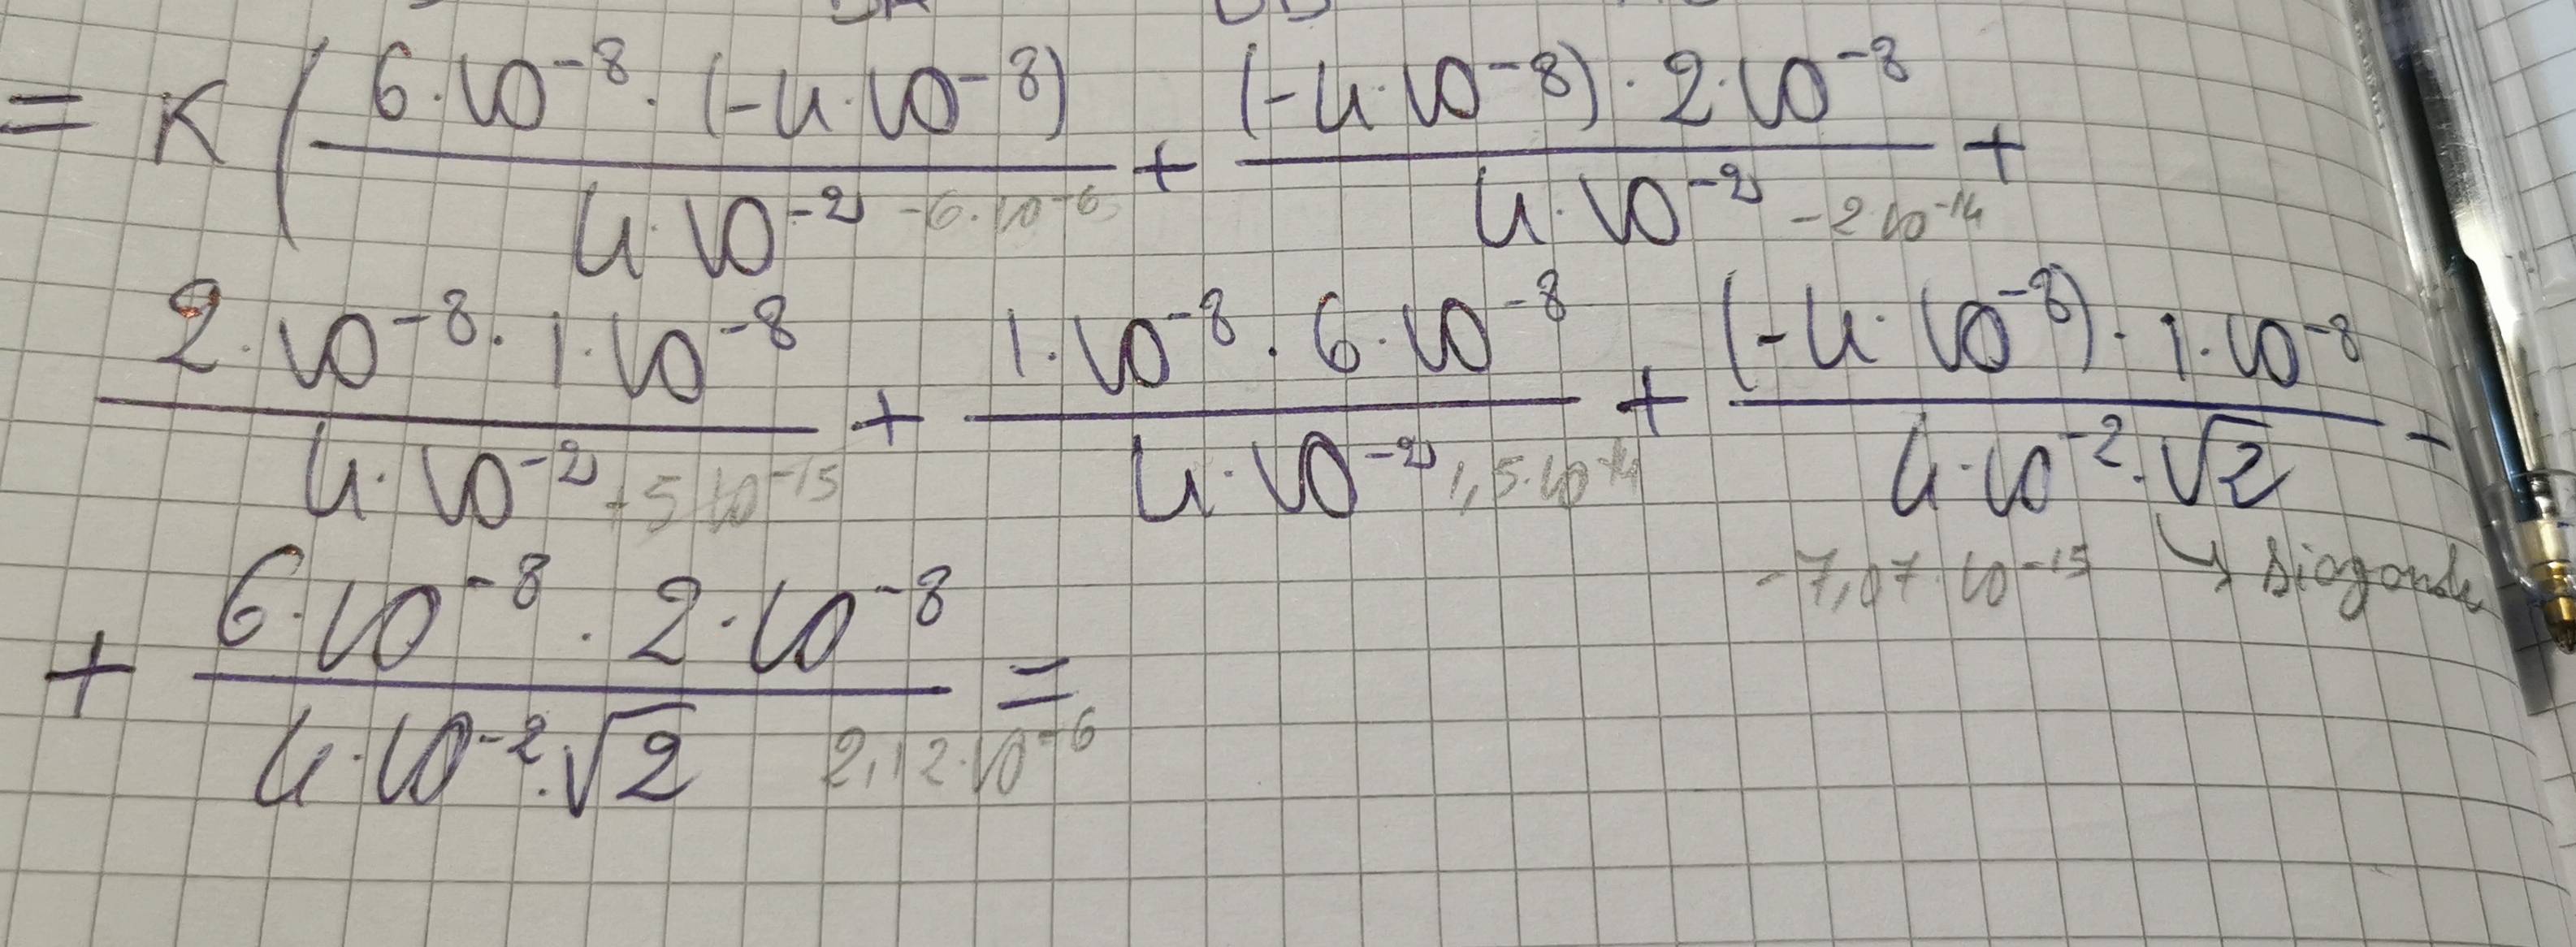 = K ( 6·10⁻⁸·(-4·10⁻⁸) / 4·10⁻² -6·10⁻⁶ + (-4·10⁻⁸)·2·10⁻⁸ / 4·10⁻² -2·10⁻¹⁴ +
2·10⁻⁸·1·10⁻⁸ / 4·10⁻² +5·10⁻¹⁵ + 1·10⁻⁸·6·10⁻⁸ / 4·10⁻² 1,5·10⁻¹⁴ + (-4·10⁻⁸)·1·10⁻⁸ / 4·10⁻²·√2 +
-7,07·10⁻¹⁵ ↳ diagonale
+ 6·10⁻⁸·2·10⁻⁸ / 4·10⁻²·√2 2,12·10⁻⁶ =